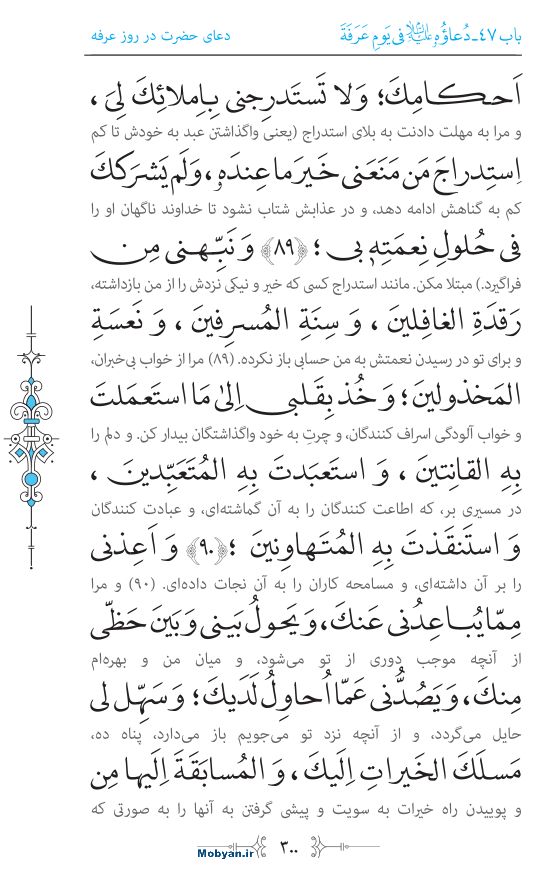 باب ٤٧-دُعاؤُهُ عليه‌السلام فی یَومِ عَرَفَةَ دعای حضرت در روز عرفه
اَحکامِكَ؛ وَلا تَستَدرِجنی بِاِملائِكَ لِیَ ،
و مرا به مهلت دادنت به بلای استدراج (یعنی واگذاشتن عبد به خودش تا کم
اِستِدراجَ مَن مَنَعَنی خَیرَ ما عِندَهُ، وَلَم یَشرَککَ
کم به گناهش ادامه دهد، و در عذابش شتاب نشود تا خداوند ناگهان او را
فی حُلولِ نِعمَتِهِ بی ؛ ﴿٨٩﴾ وَ نَبِّهنی مِن
فراگیرد.) مبتلا مکن. مانند استدراج کسی که خیر و نیکی نزدش را از من بازداشته،
رَقدَةِ الغافِلینَ ، وَ سِنَةِ المُسرِفینَ ، وَ نَعسَةِ
و برای تو در رسیدن نعمتش به من حسابی باز نکرده. (۸۹) مرا از خواب بی‌خبران،
المَخذولینَ ؛ وَ خُذ بِقَلبی اِلیٰ مَا استَعمَلتَ
و خواب آلودگی اسراف کنندگان، و چرتِ به خود واگذاشتگان بیدار کن. و دلم را
بِهِ القانِتینَ ، وَ استَعبَدتَ بِهِ المُتَعَبِّدینَ ،
در مسیری بر، که اطاعت کنندگان را به آن گماشته‌ای، و عبادت کنندگان
وَ استَنقَذتَ بِهِ المُتَهاوِنینَ ؛ ﴿٩٠﴾ وَ اَعِذنی
را بر آن داشته‌ای، و مسامحه کاران را به آن نجات داده‌ای. (۹۰) و مرا
مِمّا یُباعِدُنی عَنكَ، وَ یَحولُ بَینی وَ بَینَ حَظّی
از آنچه موجب دوری از تو می‌شود، و میان من و بهره‌ام
مِنكَ، وَ یَصُدُّنی عَمّا اُحاوِلُ لَدَیكَ ؛ وَ سَهِّل لی
حایل می‌گردد، و از آنچه نزد تو می‌جویم باز می‌دارد، پناه ده،
مَسلَكَ الخَیراتِ اِلَیكَ ، وَ المُسابَقَةَ اِلَیها مِن
و پوییدن راه خیرات به سویت و پیشی گرفتن به آنها را به صورتی که
۳۰۰
Mobyan.ir